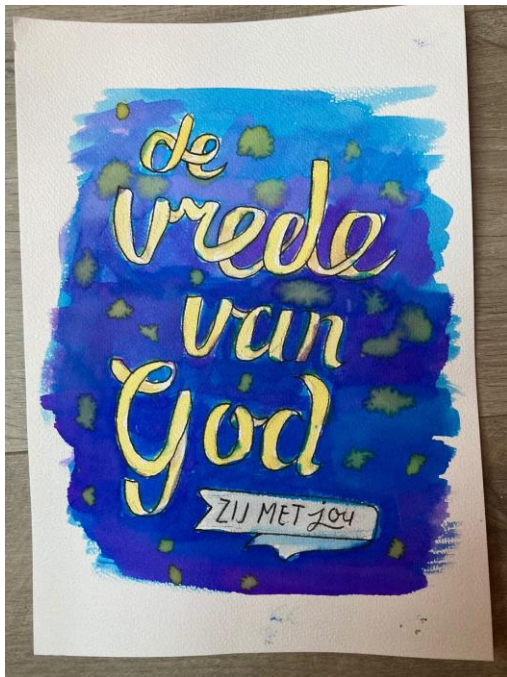 de
vrede
van
God
ZIJ MET jou